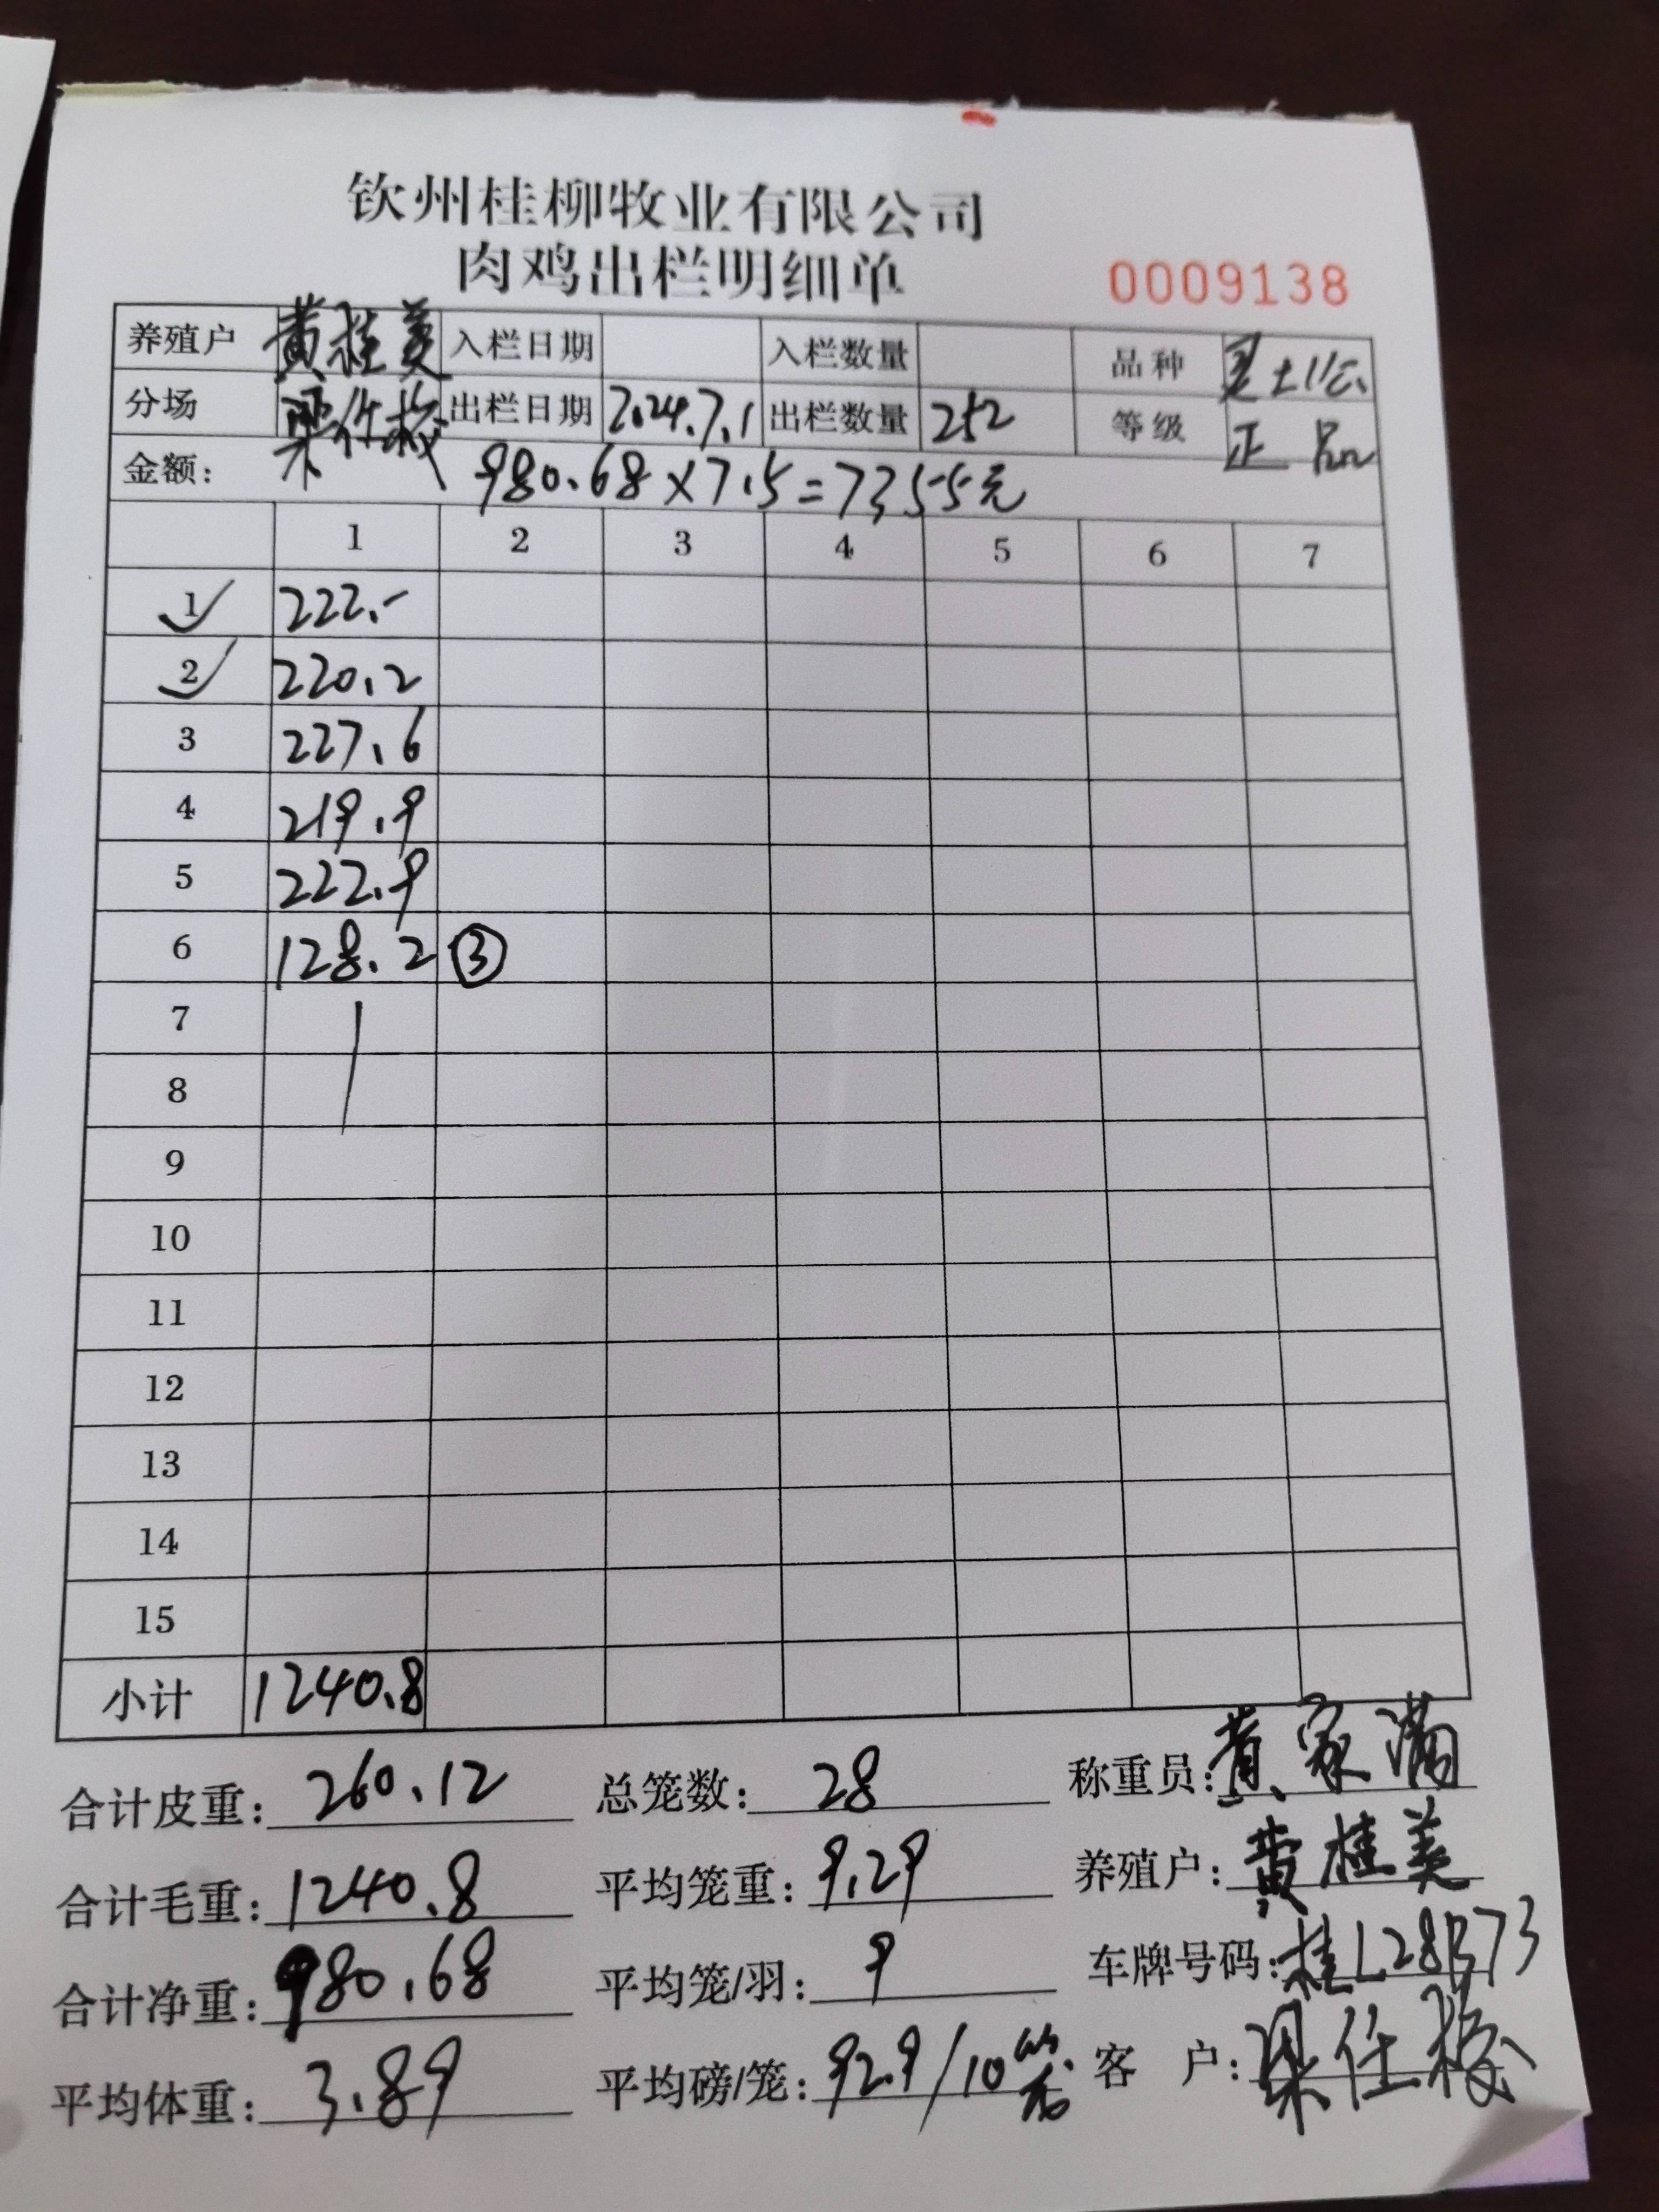 钦州桂柳牧业有限公司
肉鸡出栏明细单 0009138
养殖户 黄桂美 入栏日期 入栏数量 品种 土1公
分场 梁仕 出栏日期 2.24.7.1 出栏数量 252 等级 正品
金额: 980.68×7.5=7355元
1 2 3 4 5 6 7
1 222.-
2 220.2
3 227.6
4 219.9
5 222.9
6 128.2 ③
7
8
9
10
11
12
13
14
15
小计 1240.8
合计皮重: 260.12 总笼数: 28 称重员: 黄家满
合计毛重: 1240.8 平均笼重: 9.29 养殖户: 黄桂美
合计净重: 980.68 平均笼/羽: 9 车牌号码: 桂L28B73
平均体重: 3.89 平均磅/笼: 92.9/10 客 户: 梁仕